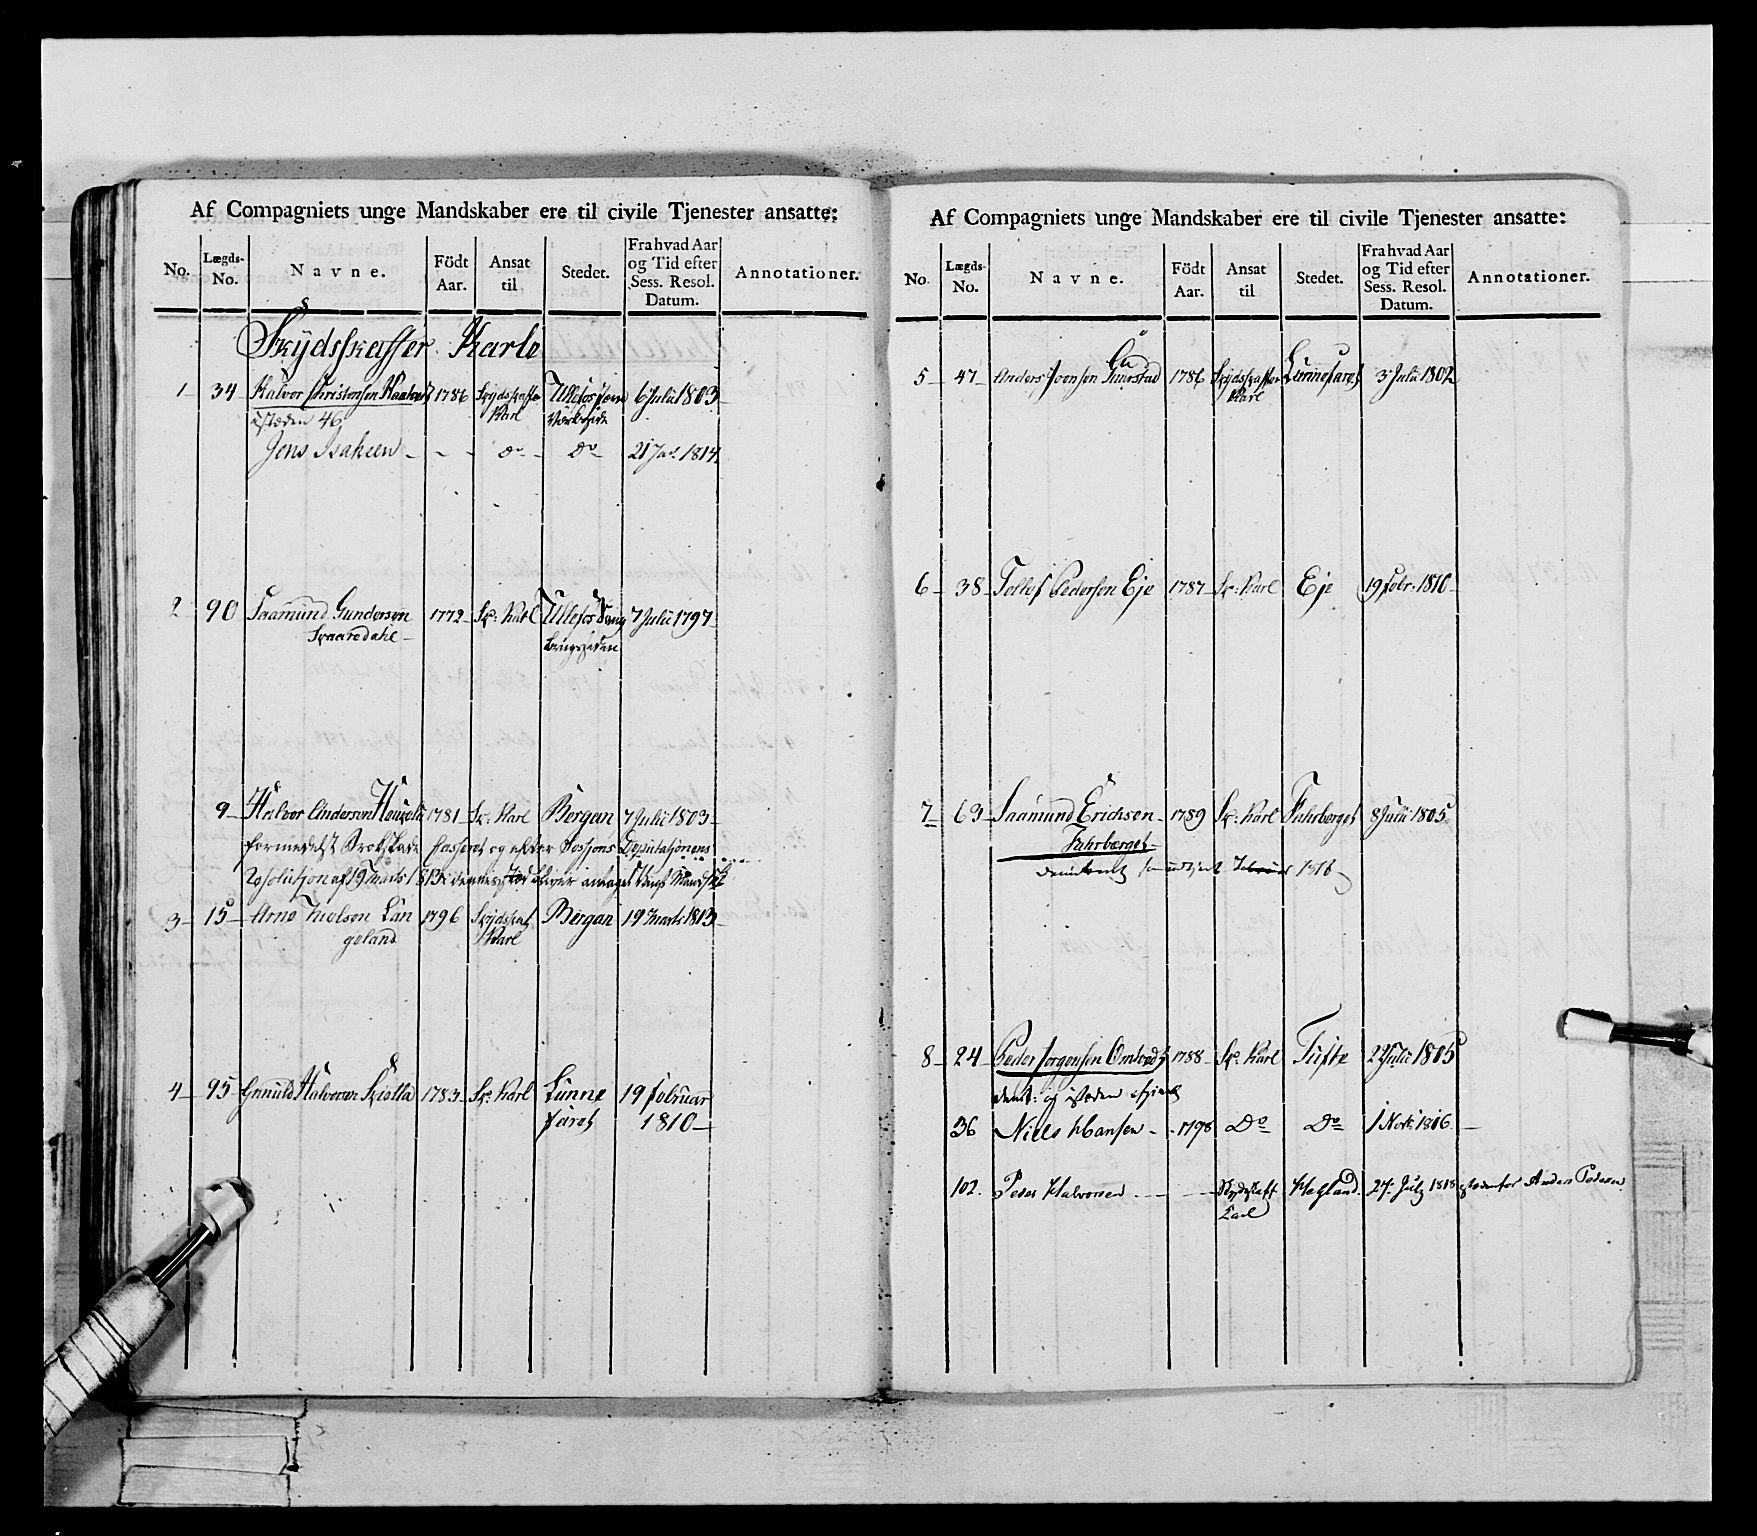 Af Compagniets unge Mandskaber ere til civile Tjenester ansatte:
No. Lægds-No. Navne. Födt Aar. Ansat til Stedet. Fra hvad Aar og Tid efter Sess. Resol. Datum. Annotationer.
Skydsskaffer Karle
1 34 Halvor Christensen 1786 Skydskaffer Karl 6 Julii 1803
istæden 46
Jens Isaksen - - - Do - Do 21 Jan. 1814
2 90 Saamund Gunderson Skaaredahl 1772 Sk: Karl 7 Julii 1797
9 Halvor Anderson 1781 Sk: Karl Bergan 7 Julii 1803
formedelst og efter Sessions Deputasjonens
Resolution af 19 Marts 1813
3 15 Arne Langeland 1796 Skydsskaf Karl Bergan 19 Marti 1813
4 95 Halvorsen 1783 Sk: Karl 19 Februar 1810
Af Compagniets unge Mandskaber ere til civile Tjenester ansatte:
No. Lægds-No. Navne. Födt Aar. Ansat til Stedet. Fra hvad Aar og Tid efter Sess. Resol. Datum. Annotationer.
5 47 Anders Joensen 1786 Skydsskaffer Karl 3 Julii 1802
6 38 Tollef Pederson Eje 1787 Sk: Karl Eje 19 Febr: 1810
7 63 Saamund Erichsen Fahrberget 1789 Sk: Karl Fahrberget 8 Julii 1805
1816
8 24 Peder Jørgensen 1788 Sk: Karl Tufte 2 Julii 1805
istæden
36 Niels Hansen - 1798 Do Do 1816
102. Peder Halvorsen - - - Skydskaff Karl Hegland 24. July 1818 istedenfor Anders Pedersen